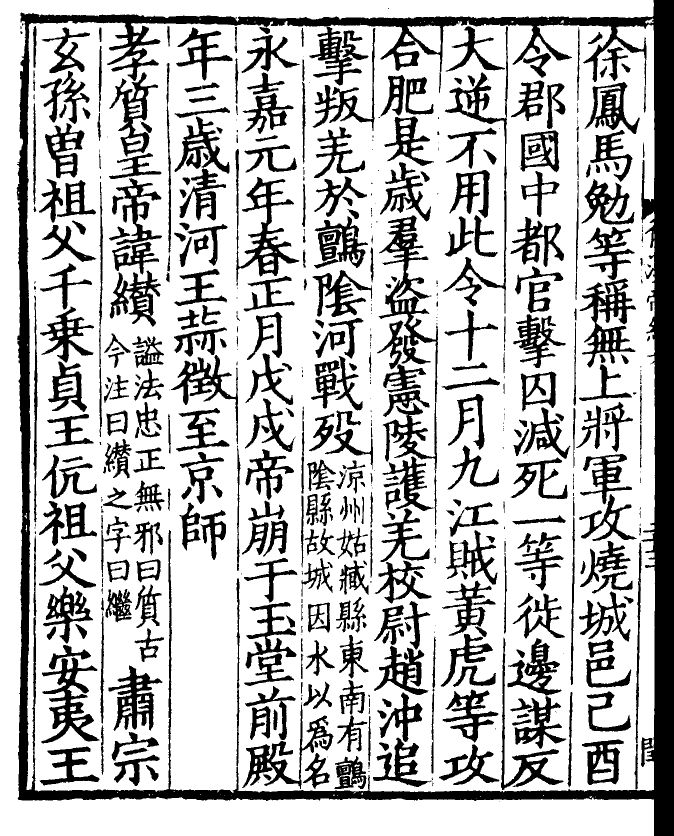 徐鳳馬勉等稱無上將軍攻燒城邑己酉
令郡國中都官擊囚減死一等徙邊謀反
大逆不用此令十二月九江賊黃虎等攻
合肥是歲羣盜發憲陵護羌校尉趙沖追
擊叛羌於鸇陰河戰歿涼州姑臧縣東南有鸇陰縣故城因水以爲名
永嘉元年春正月戊戌帝崩于玉堂前殿
年三歲清河王蒜徵至京師
孝質皇帝諱纘謚法忠正無邪曰質古今注曰纘之字曰繼肅宗
玄孫曾祖父千乗貞王伉祖父樂安夷王